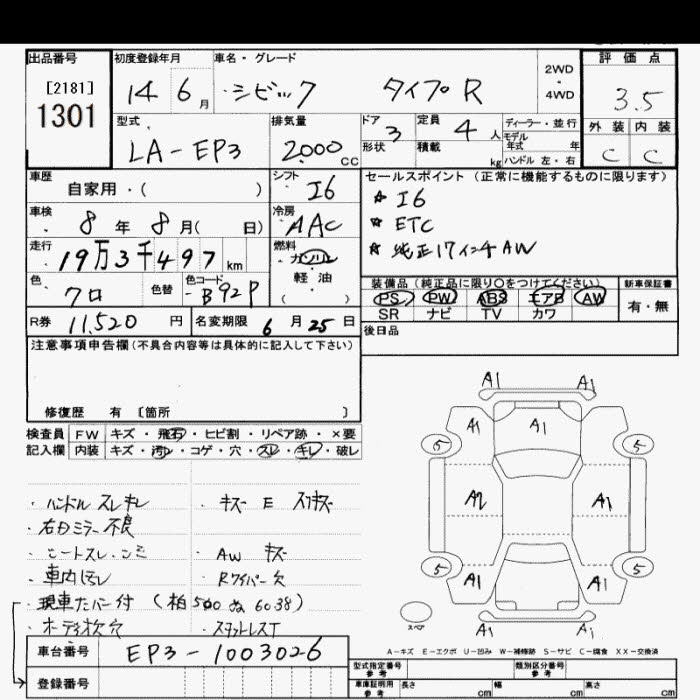 出品番号
[2181]
1301
初度登録年月
14 6 月
車名・グレード
シビック タイプR
2WD
・
4WD
評 価 点
3.5
外 装 内 装
C C
型式
LA-EP3
排気量
2000 CC
ドア 3
形状
定員 4 人
積載 kg
ディーラー・並行
モデル
年式 年
ハンドル 左・右
車歴
自家用・( )
シフト
I6
セールスポイント (正常に機能するものに限ります)
☆ I6
☆ ETC
☆ 純正17インチAW
車検
8 年 8 月( 日)
冷房
AAC
走行
19万3千497 km
燃料
ガソリン
軽 油
( )
色
クロ
色替
色コード
B92P
装備品(純正品に限り〇をつけてください)
PS PW ABS エアB AW
SR ナビ TV カワ
新車保証書
有・無
R券 11,520 円
名変期限 6 月 25 日
後日品
注意事項申告欄(不具合内容等は具体的に記入して下さい)
修復歴 有 〔箇所 〕
検査員 FW キズ・飛石・ヒビ割・リペア跡・×要
記入欄 内装 キズ・汚レ・コゲ・穴・スレ・キレ・破レ
・ハンドルスレキレ
・キズ E スリキズ
・右ドミラー不良
・シートスレ.シミ
・AW キズ
・車内ヨゴレ
・Rワイパー欠
・現車ナンバー付 (柏500ぬ6038)
・オーディオ欠穴
・スタットレスT
車台番号 EP3-1003026
登録番号
A1 A1
A1 A1
5 5
A2 A1
5 5
A1 A1
A1 A1
スペア
A-キズ E-エクボ U-凹み W-補修跡 S-サビ C-腐食 XX-交換済
型式指定番号
参考
類別区分番号
参考
車庫証明用
参考
長さ cm 幅 cm 高さ cm